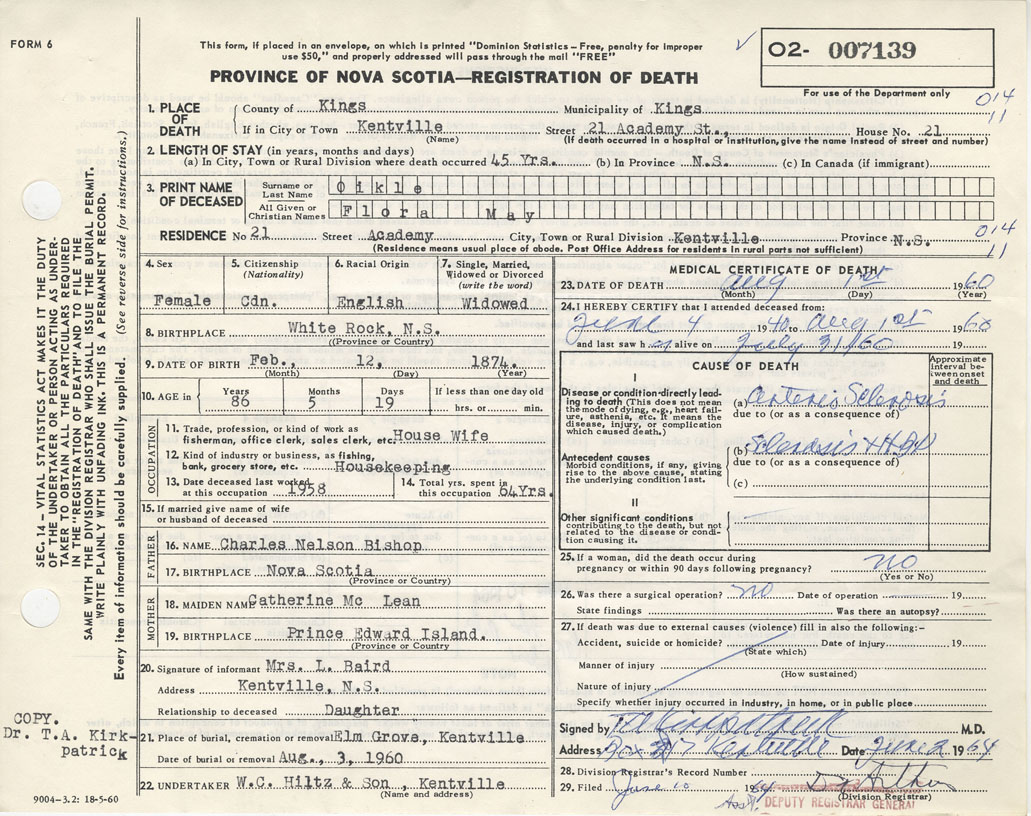 FORM 6
This form, if placed in an envelope, on which is printed "Dominion Statistics – Free, penalty for improper
use $50," and properly addressed will pass through the mail "FREE"
PROVINCE OF NOVA SCOTIA—REGISTRATION OF DEATH
O2- 007139
For use of the Department only
014
11
1. PLACE OF DEATH
County of Kings Municipality of Kings
If in City or Town Kentville Street 21 Academy St., House No. 21
(Name) (If death occurred in a hospital or institution, give the name instead of street and number)
2. LENGTH OF STAY (in years, months and days)
(a) In City, Town or Rural Division where death occurred 45 Yrs. (b) In Province N.S. (c) In Canada (if immigrant)
3. PRINT NAME OF DECEASED
Surname or Last Name Oikle
All Given or Christian Names Flora May
RESIDENCE No 21 Street Academy City, Town or Rural Division Kentville Province N.S.
014
11
(Residence means usual place of abode. Post Office Address for residents in rural parts not sufficient)
4. Sex
Female
5. Citizenship
(Nationality)
Cdn.
6. Racial Origin
English
7. Single, Married,
Widowed or Divorced
(write the word)
Widowed
8. BIRTHPLACE White Rock, N.S.
((Province or Country)
9. DATE OF BIRTH Feb., 12, 1874.
(Month) (Day) (Year)
10. AGE in
Years Months Days If less than one day old
86 5 19 hrs. or min.
OCCUPATION
11. Trade, profession, or kind of work as
fisherman, office clerk, sales clerk, etc. House Wife
12. Kind of industry or business, as fishing,
bank, grocery store, etc. Housekeeping
13. Date deceased last worked
at this occupation 1958
14. Total yrs. spent in
this occupation 64Yrs.
15. If married give name of wife
or husband of deceased
FATHER
16. NAME Charles Nelson Bishop
17. BIRTHPLACE Nova Scotia
(Province or Country)
MOTHER
18. MAIDEN NAME Catherine Mc Lean
19. BIRTHPLACE Prince Edward Island.
(Province or Country
20. Signature of informant Mrs. L. Baird
Address Kentville, N.S.
Relationship to deceased Daughter
21. Place of burial, cremation or removal Elm Grove, Kentville
Date of burial or removal Aug., 3, 1960
22. UNDERTAKER W.C. Hiltz & Son , Kentville
(Name and address)
MEDICAL CERTIFICATE OF DEATH
23. DATE OF DEATH Aug 1st 1960
(Month) (Day) (Year)
24. I HEREBY CERTIFY that I attended deceased from:
June 4 1940 to Aug 1st 1960
and last saw h alive on July 31/60 19
CAUSE OF DEATH
Approximate
interval be-
tween onset
and death
I
Disease or condition directly lead-
ing to death (This does not mean
the mode of dying, e.g., heart fail-
ure, asthenia, etc. It means the
disease, injury, or complication
which caused death.)
(a) Arterio Sclerosis
due to (or as a consequence of)
Antecedent causes
Morbid conditions, if any, giving
rise to the above cause, stating
the underlying condition last.
(b) Sclerosis
due to (or as a consequence of)
(c)
II
Other significant conditions
contributing to the death, but not
related to the disease or condi-
tion causing it.
25. If a woman, did the death occur during
pregnancy or within 90 days following pregnancy? NO
(Yes or No)
26. Was there a surgical operation? NO Date of operation 19
State findings Was there an autopsy?
27. If death was due to external causes (violence) fill in also the following:-
Accident, suicide or homicide? Date of injury 19
(State which)
Manner of injury
(How sustained)
Nature of injury
Specify whether injury occurred in Industry, in home, or in public place
Signed by M.D.
Address Box Kentville Date June 2 1964
28. Division Registrar's Record Number
29. Filed June 10 1964
(Division Registrar)
Asst. DEPUTY REGISTRAR GENERAL
SEC. 14 – VITAL STATISTICS ACT MAKES IT THE DUTY
OF THE UNDERTAKER OR PERSON ACTING AS UNDER-
TAKER TO OBTAIN ALL THE PARTICULARS REQUIRED
IN THE "REGISTRATION OF DEATH" AND TO FILE THE
SAME WITH THE DIVISION REGISTRAR WHO SHALL ISSUE THE BURIAL PERMIT.
WRITE PLAINLY WITH UNFADING INK. THIS IS A PERMANENT RECORD.
Every item of information should be carefully supplied. (See reverse side for instructions.)
COPY.
Dr. T.A. Kirk-
patrick
9004-3.2: 18-5-60